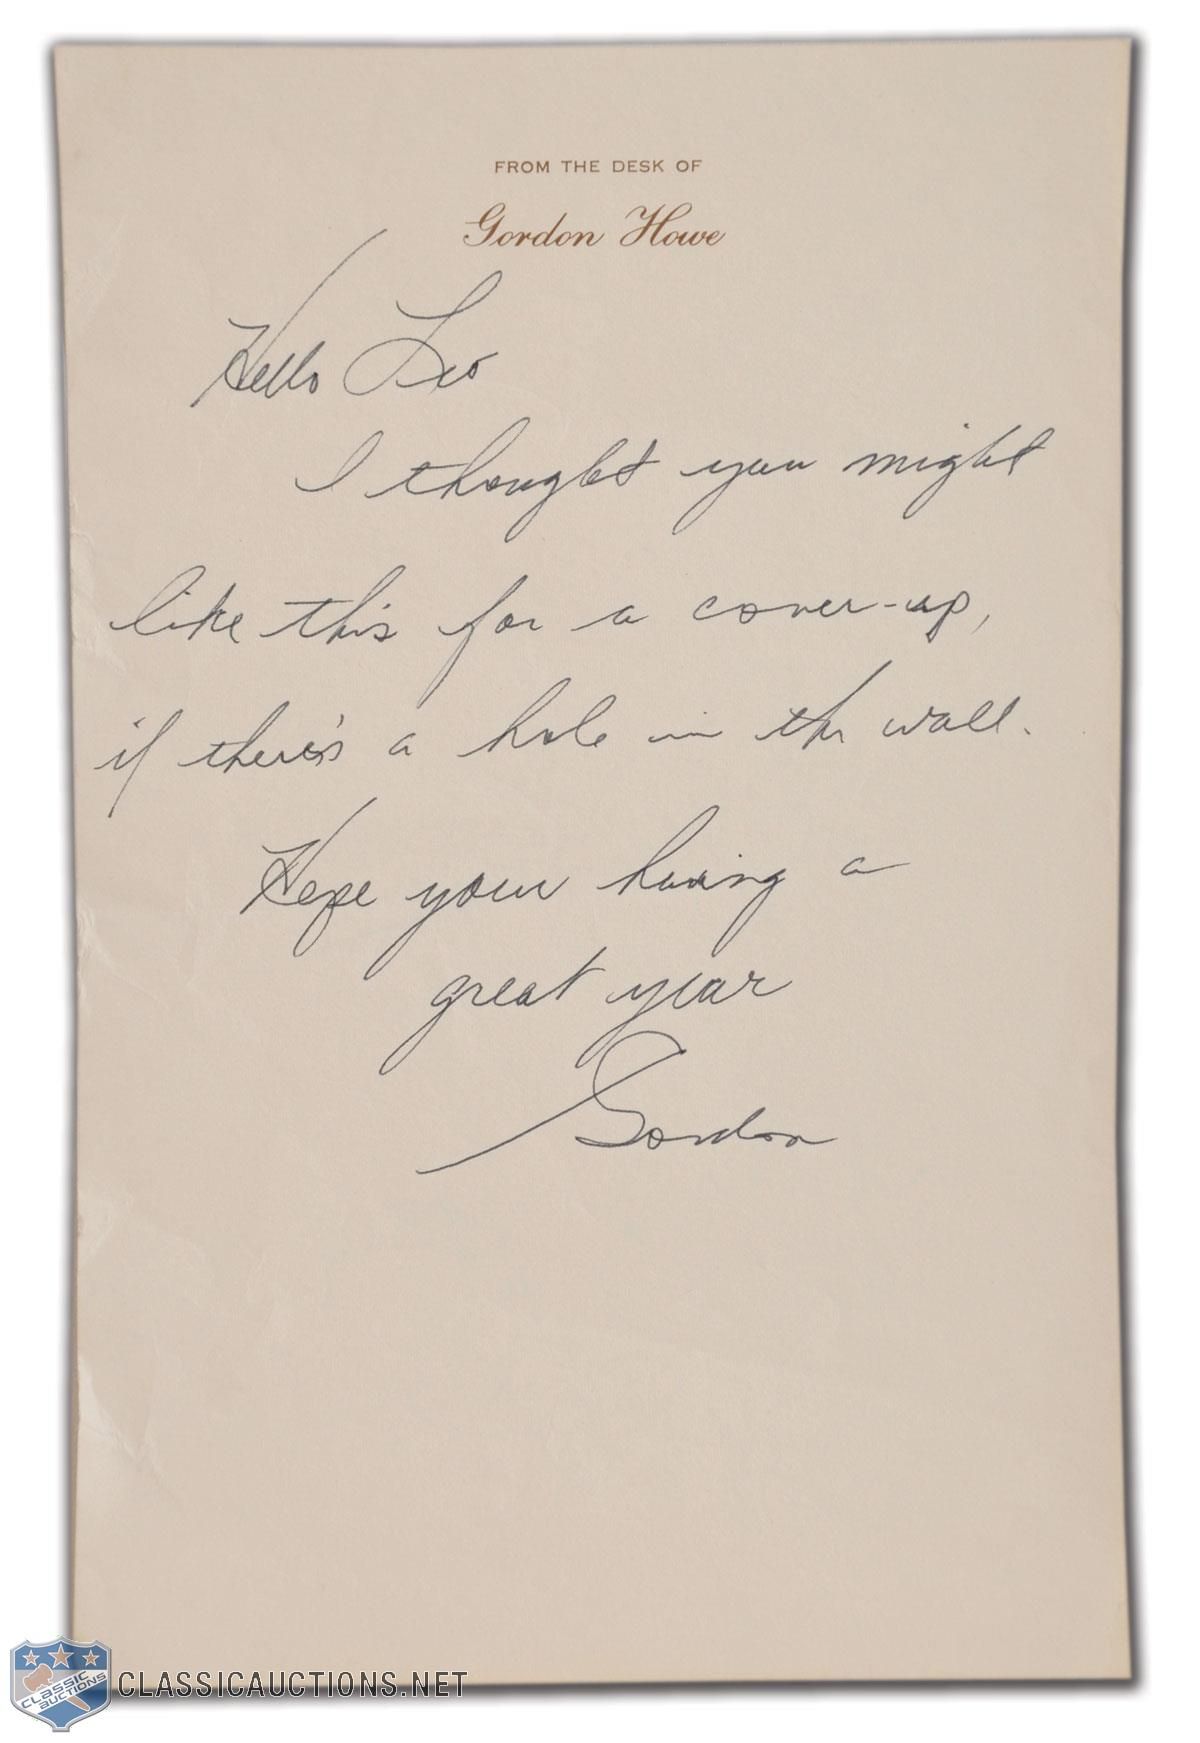 FROM THE DESK OF
Gordon Howe
Hello Leo
I thought you might
like this for a cover-up,
if there's a hole in the wall.
Hope your having a
great year
Gordon
CLASSIC AUCTIONS
CLASSICAUCTIONS.NET